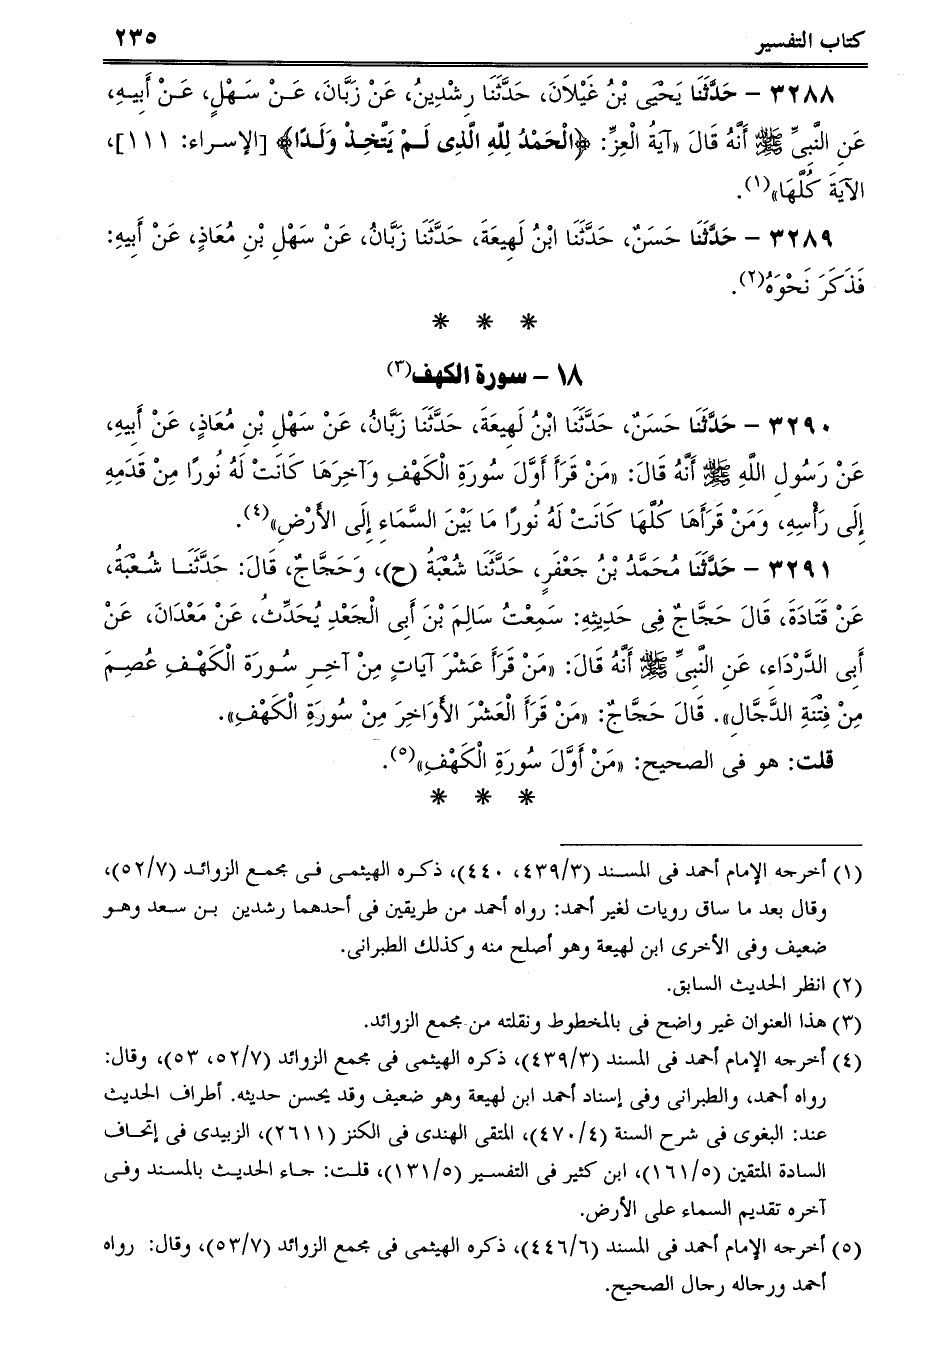 كتاب التفسير ٢٣٥
٣٢٨٨ - حَدَّثَنَا يَحْيَى بْنُ غَيْلَانَ، حَدَّثَنَا رِشْدِينُ، عَنْ زَبَّانَ، عَـنْ سَـهْلٍ، عَـنْ أَبِيهِ،
عَنِ النَّبِىِّ ﷺ أَنَّهُ قَالَ «آيَةُ الْعِزِّ: ﴿الْحَمْدُ لِلَّهِ الَّذِى لَـمْ يَتَّخِـذْ وَلَـدًا﴾ [الإسـراء: ١١١]،
الآيَةَ كُلَّهَا»(١).
٣٢٨٩ - حَدَّثَنَا حَسَنٌ، حَدَّثَنَا ابْنُ لَهِيعَةَ، حَدَّثَنَا زَبَّانُ، عَنْ سَهْلِ بْنِ مُعَاذٍ، عَنْ أَبِيهِ:
فَذَكَرَ نَحْوَهُ(٢).
* * *
١٨ - سورة الكهف(٣)
٣٢٩٠ - حَدَّثَنَا حَسَنٌ، حَدَّثَنَا ابْنُ لَهِيعَةَ، حَدَّثَنَا زَبَّانُ، عَنْ سَهْلِ بْنِ مُعَاذٍ، عَنْ أَبِيهِ،
عَنْ رَسُولِ اللَّهِ ﷺ أَنَّهُ قَالَ: «مَنْ قَرَأَ أَوَّلَ سُورَةِ الْكَهْفِ وَآخِرَهَا كَانَتْ لَهُ نُورًا مِنْ قَدَمِهِ
إِلَى رَأْسِهِ، وَمَنْ قَرَأَهَا كُلَّهَا كَانَتْ لَهُ نُورًا مَا بَيْنَ السَّمَاءِ إِلَى الأَرْضِ»(٤).
٣٢٩١ - حَدَّثَنَا مُحَمَّدُ بْنُ جَعْفَرٍ، حَدَّثَنَا شُعْبَةُ (ح)، وَحَجَّاجٌ، قَالَ: حَدَّثَنَـا شُـعْبَةُ،
عَنْ قَتَادَةَ، قَالَ حَجَّاجٌ فِى حَدِيثِهِ: سَمِعْتُ سَالِمَ بْنَ أَبِى الْجَعْدِ يُحَدِّثُ، عَنْ مَعْدَانَ، عَنْ
أَبِى الدَّرْدَاءِ، عَنِ النَّبِىِّ ﷺ أَنَّهُ قَالَ: «مَنْ قَرَأَ عَشْرَ آيَاتٍ مِنْ آخِـرِ سُـورَةِ الْكَهْـفِ عُصِـمَ
مِنْ فِتْنَةِ الدَّجَّالِ». قَالَ حَجَّاجٌ: «مَنْ قَرَأَ الْعَشْرَ الأَوَاخِرَ مِنْ سُورَةِ الْكَهْفِ».
قلت: هو فى الصحيح: «مَنْ أَوَّلَ سُورَةِ الْكَهْفِ»(٥).
* * *
(١) أخرجه الإمام أحمد فى المسـند (٤٣٩/٣، ٤٤٠)، ذكـره الهيثمـى فـى مجمـع الزوائـد (٥٢/٧)،
وقال بعد ما ساق رويات لغير أحمد: رواه أحمد من طريقين فى أحدهما رشدين بـن سـعد وهـو
ضعيف وفى الأخرى ابن لهيعة وهو أصلح منه وكذلك الطبرانى.
(٢) انظر الحديث السابق.
(٣) هذا العنوان غير واضح فى بالمخطوط ونقلته من مجمع الزوائد.
(٤) أخرجه الإمام أحمد فى المسند (٤٣٩/٣)، ذكره الهيثمى فى مجمع الزوائد (٥٢/٧، ٥٣)، وقال:
رواه أحمد، والطبرانى وفى إسناد أحمد ابن لهيعة وهو ضعيف وقد يحسن حديثه. أطراف الحديث
عند: البغوى فى شرح السنة (٤٧٠/٤)، المتقى الهندى فى الكنز (٢٦١١)، الزبيدى فى إتحـاف
السادة المتقين (١٦١/٥)، ابن كثير فى التفسير (١٣١/٥)، قلـت: جـاء الحديـث بالمسند وفـى
آخره تقديم السماء على الأرض.
(٥) أخرجه الإمام أحمد فى المسند (٤٤٦/٦)، ذكره الهيثمى فى مجمع الزوائد (٥٣/٧)، وقال: رواه
أحمد ورجاله رجال الصحيح.